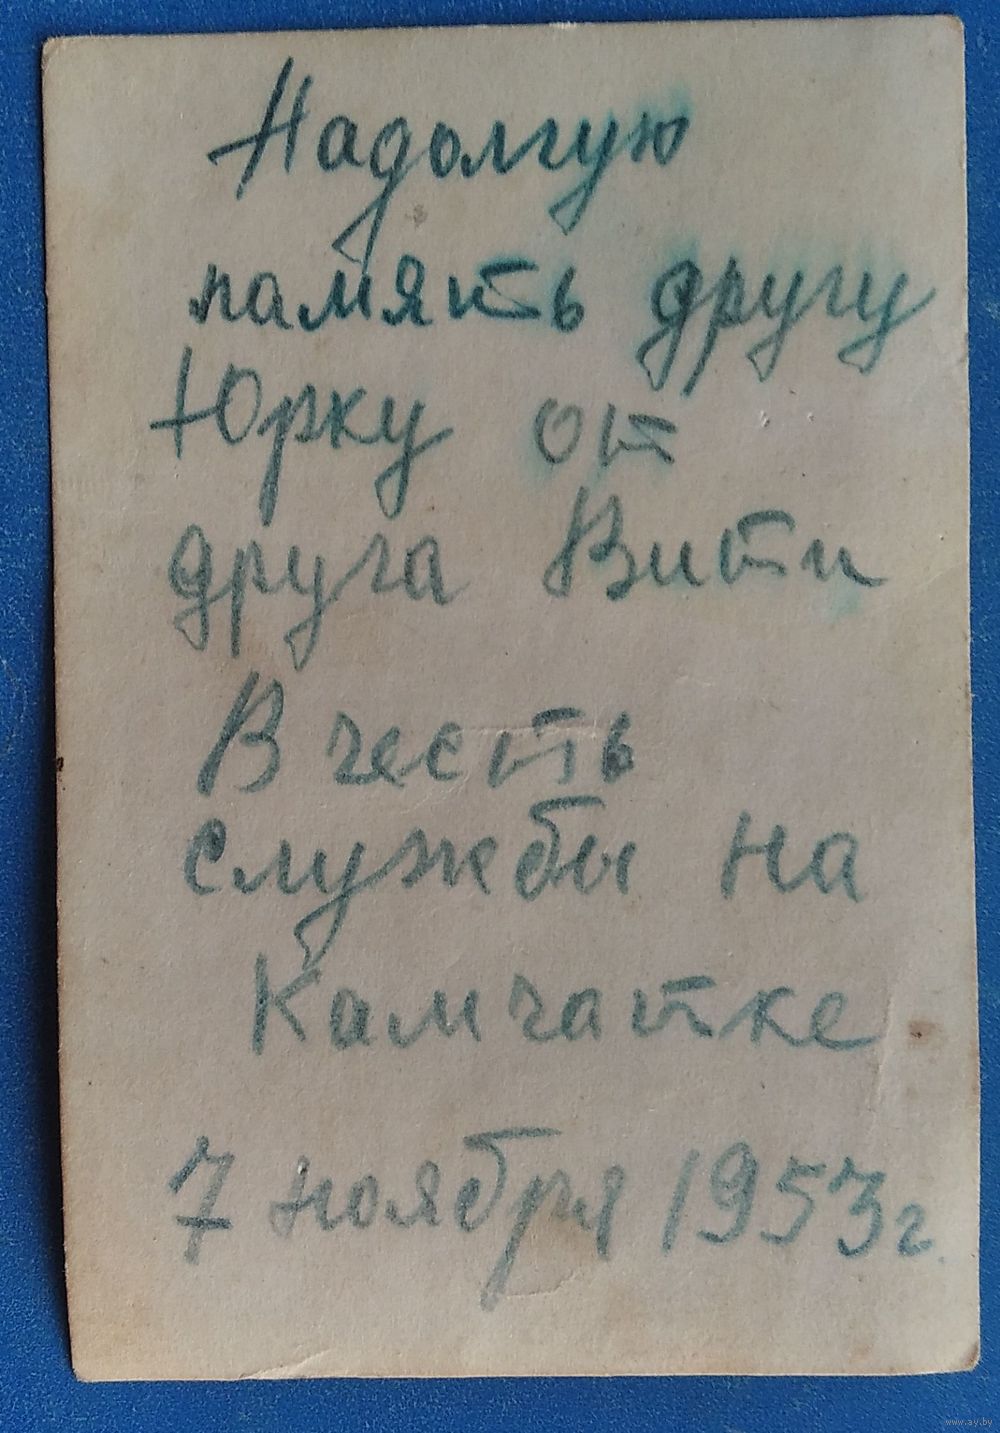 Надолгую
память другу
Юрку от
друга Вити
В честь
службы на
Камчатке
7 ноября 1953 г.
www.ay.by